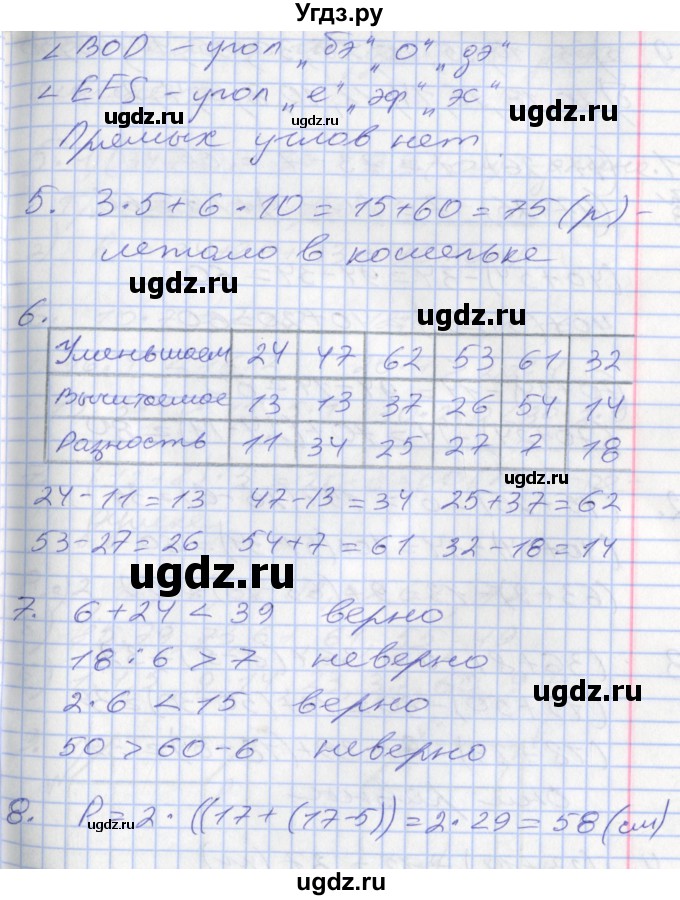 Угдз.ру
∠ BOD – угол „бэ“ „о“ „дэ“
∠ EFS – угол „е“ „эф“ „эс“
Прямых углов нет.
ugdz.ru ugdz.ru
5. 3·5+6·10=15+60=75 (р) –
летало в кошельке
ugdz.ru
6. ugdz.ru
Уменьшаем 24 47 62 53 61 32
Вычитаемое 13 13 37 26 54 14
Разность 11 34 25 27 7 18
ugdz.ru
24-11=13 47-13=34 25+37=62
53-27=26 54+7=61 32-18=14
ugdz.ru
7. 6+24<39 верно
18:6>7 неверно
2·6<15 верно
ugdz.ru
50>60-6 неверно
8. P=2·((17+(17-5))=2·29=58 (см)
ugdz.ru ugdz.ru
ugdz.ru